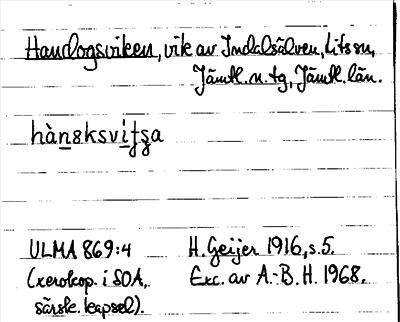 Handogsviken, vik av Indalsälven, Lits sn,
Jämtl. n. tg, Jämtl. län.
hànsksvitsa
ULMA 869:4 H. Geijer 1916, s. 5.
(xerokop. i SOA, Exc. av A.-B. H. 1968.
särsk. kapsel).